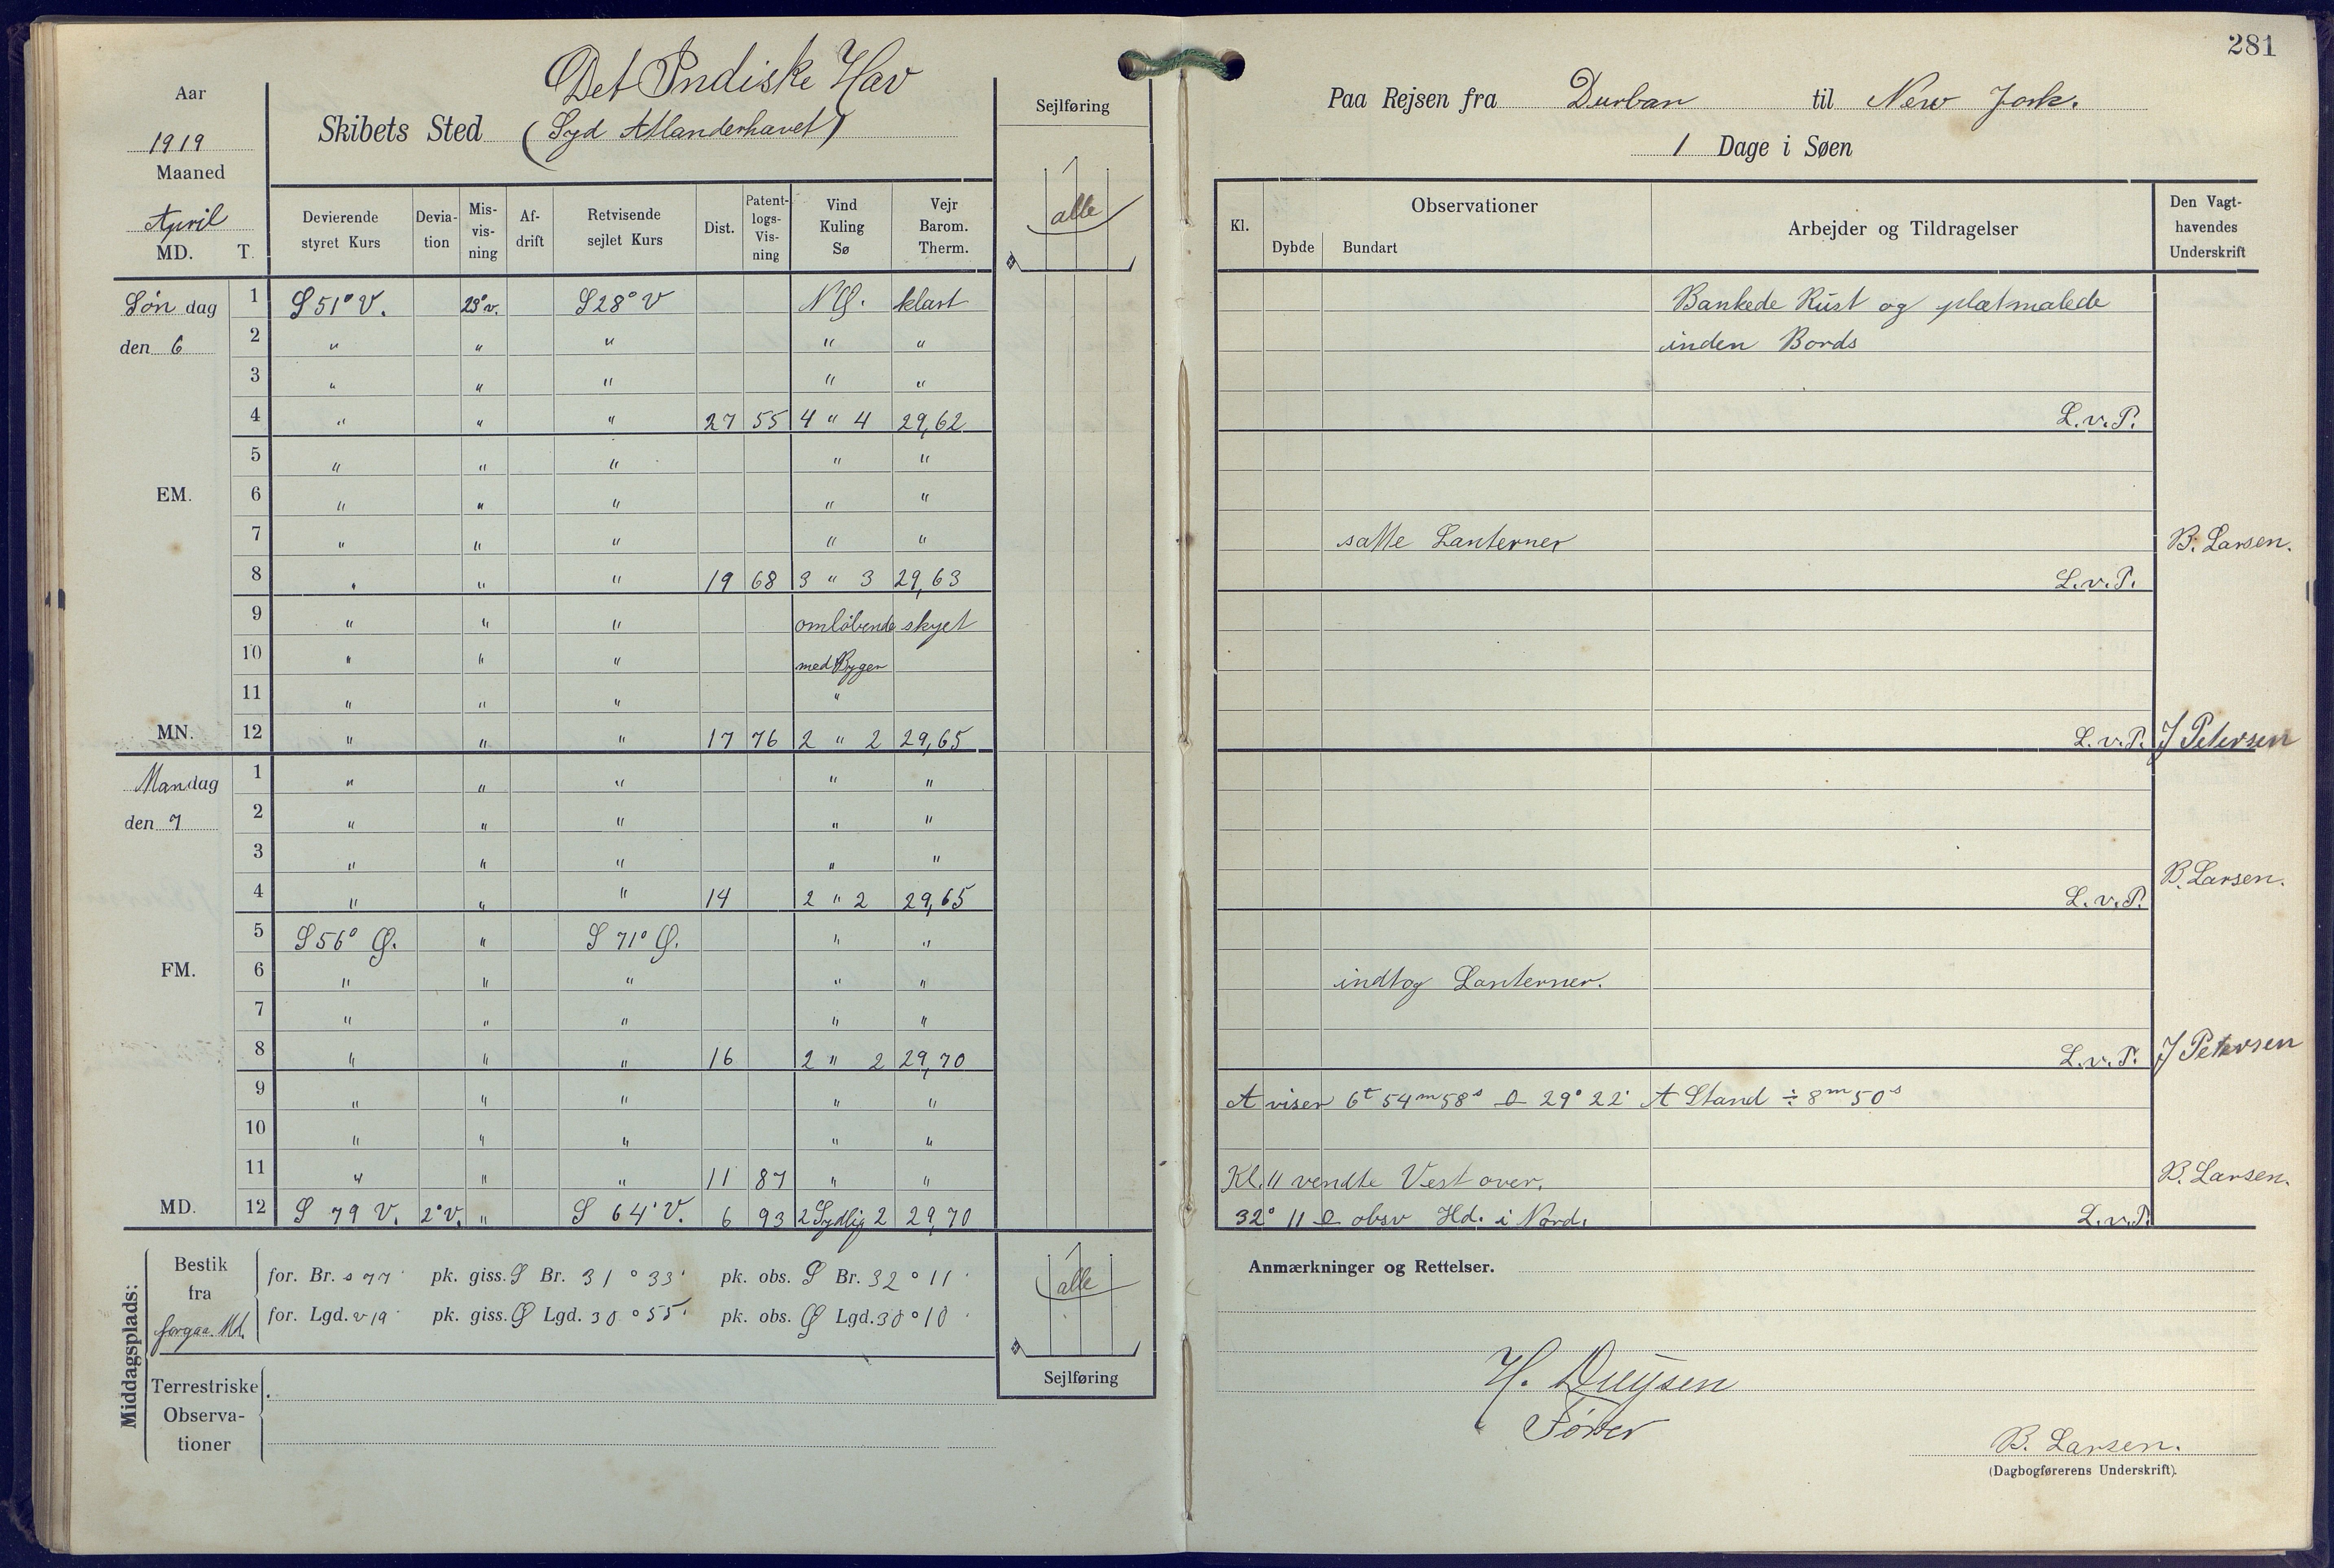 281
Aar
1919
Maaned
April
MD. T.
Det Indiske Hav
Skibets Sted (Syd Atlanderhavet)
Sejlføring
alle
Devierende styret Kurs | Devia-tion | Mis-vis-ning | Af-drift | Retvisende sejlet Kurs | Dist. | Patent-logs-Vis-ning | Vind Kuling Sø | Vejr Barom. Therm.
Søndag 1 S 51° V. 23° v. S 28° V NØ. klart
den 6 2 " " " " "
3 " " " " "
4 " " " 27 55 4 " 4 29,62
5 " " " " "
EM. 6 " " " " "
7 " " " " "
8 " " " 19 68 3 " 3 29,63
9 " " " omløbende skyet
10 " " " med Byger
11 " " " "
MN. 12 " " " 17 76 2 " 2 29,65
Mandag 1 " " " " "
den 7 2 " " " " "
3 " " " " "
4 " " " 14 2 " 2 29,65
5 S 56° Ø. " S 71° Ø. " "
FM. 6 " " " " "
7 " " " " "
8 " " " 16 2 " 2 29,70
9 " " " " "
10 " " " " "
11 " " " 11 87 " "
MD. 12 S 79 V. 2° V. " S 64° V. 6 93 2 Sydlig 2 29,70
Middagsplads:
Bestik fra forgaa. Md.
for. Br. s 77' pk. giss. S Br. 31° 33' pk. obs. S Br. 32° 11'
for. Lgd. v 19' pk. giss. Ø Lgd. 30° 55' pk. obs. Ø Lgd. 30° 10'
Terrestriske
Observa-
tioner
alle
Sejlføring
Paa Rejsen fra Durban til New Jork.
1 Dage i Søen
Kl. | Observationer | Dybde | Bundart | Arbejder og Tildragelser | Den Vagt-havendes Underskrift
Bankede Rust og pletmalede
inden Bords
L.v.P.
satte Lanterner B. Larsen.
L.v.P.
L.v.P. J Petersen
B. Larsen.
L.v.P.
indtog Lanterner.
L.v.P. J Petersen
A viser 6t 54m 58s 29° 22' A Stand ÷ 8m 50s
Kl. 11 vendte Vest over. B. Larsen.
32° 11 obsv Hd. i Nord. L.v.P.
Anmærkninger og Rettelser.
H. Duysen
Fører
B. Larsen.
(Dagbogførerens Underskrift).